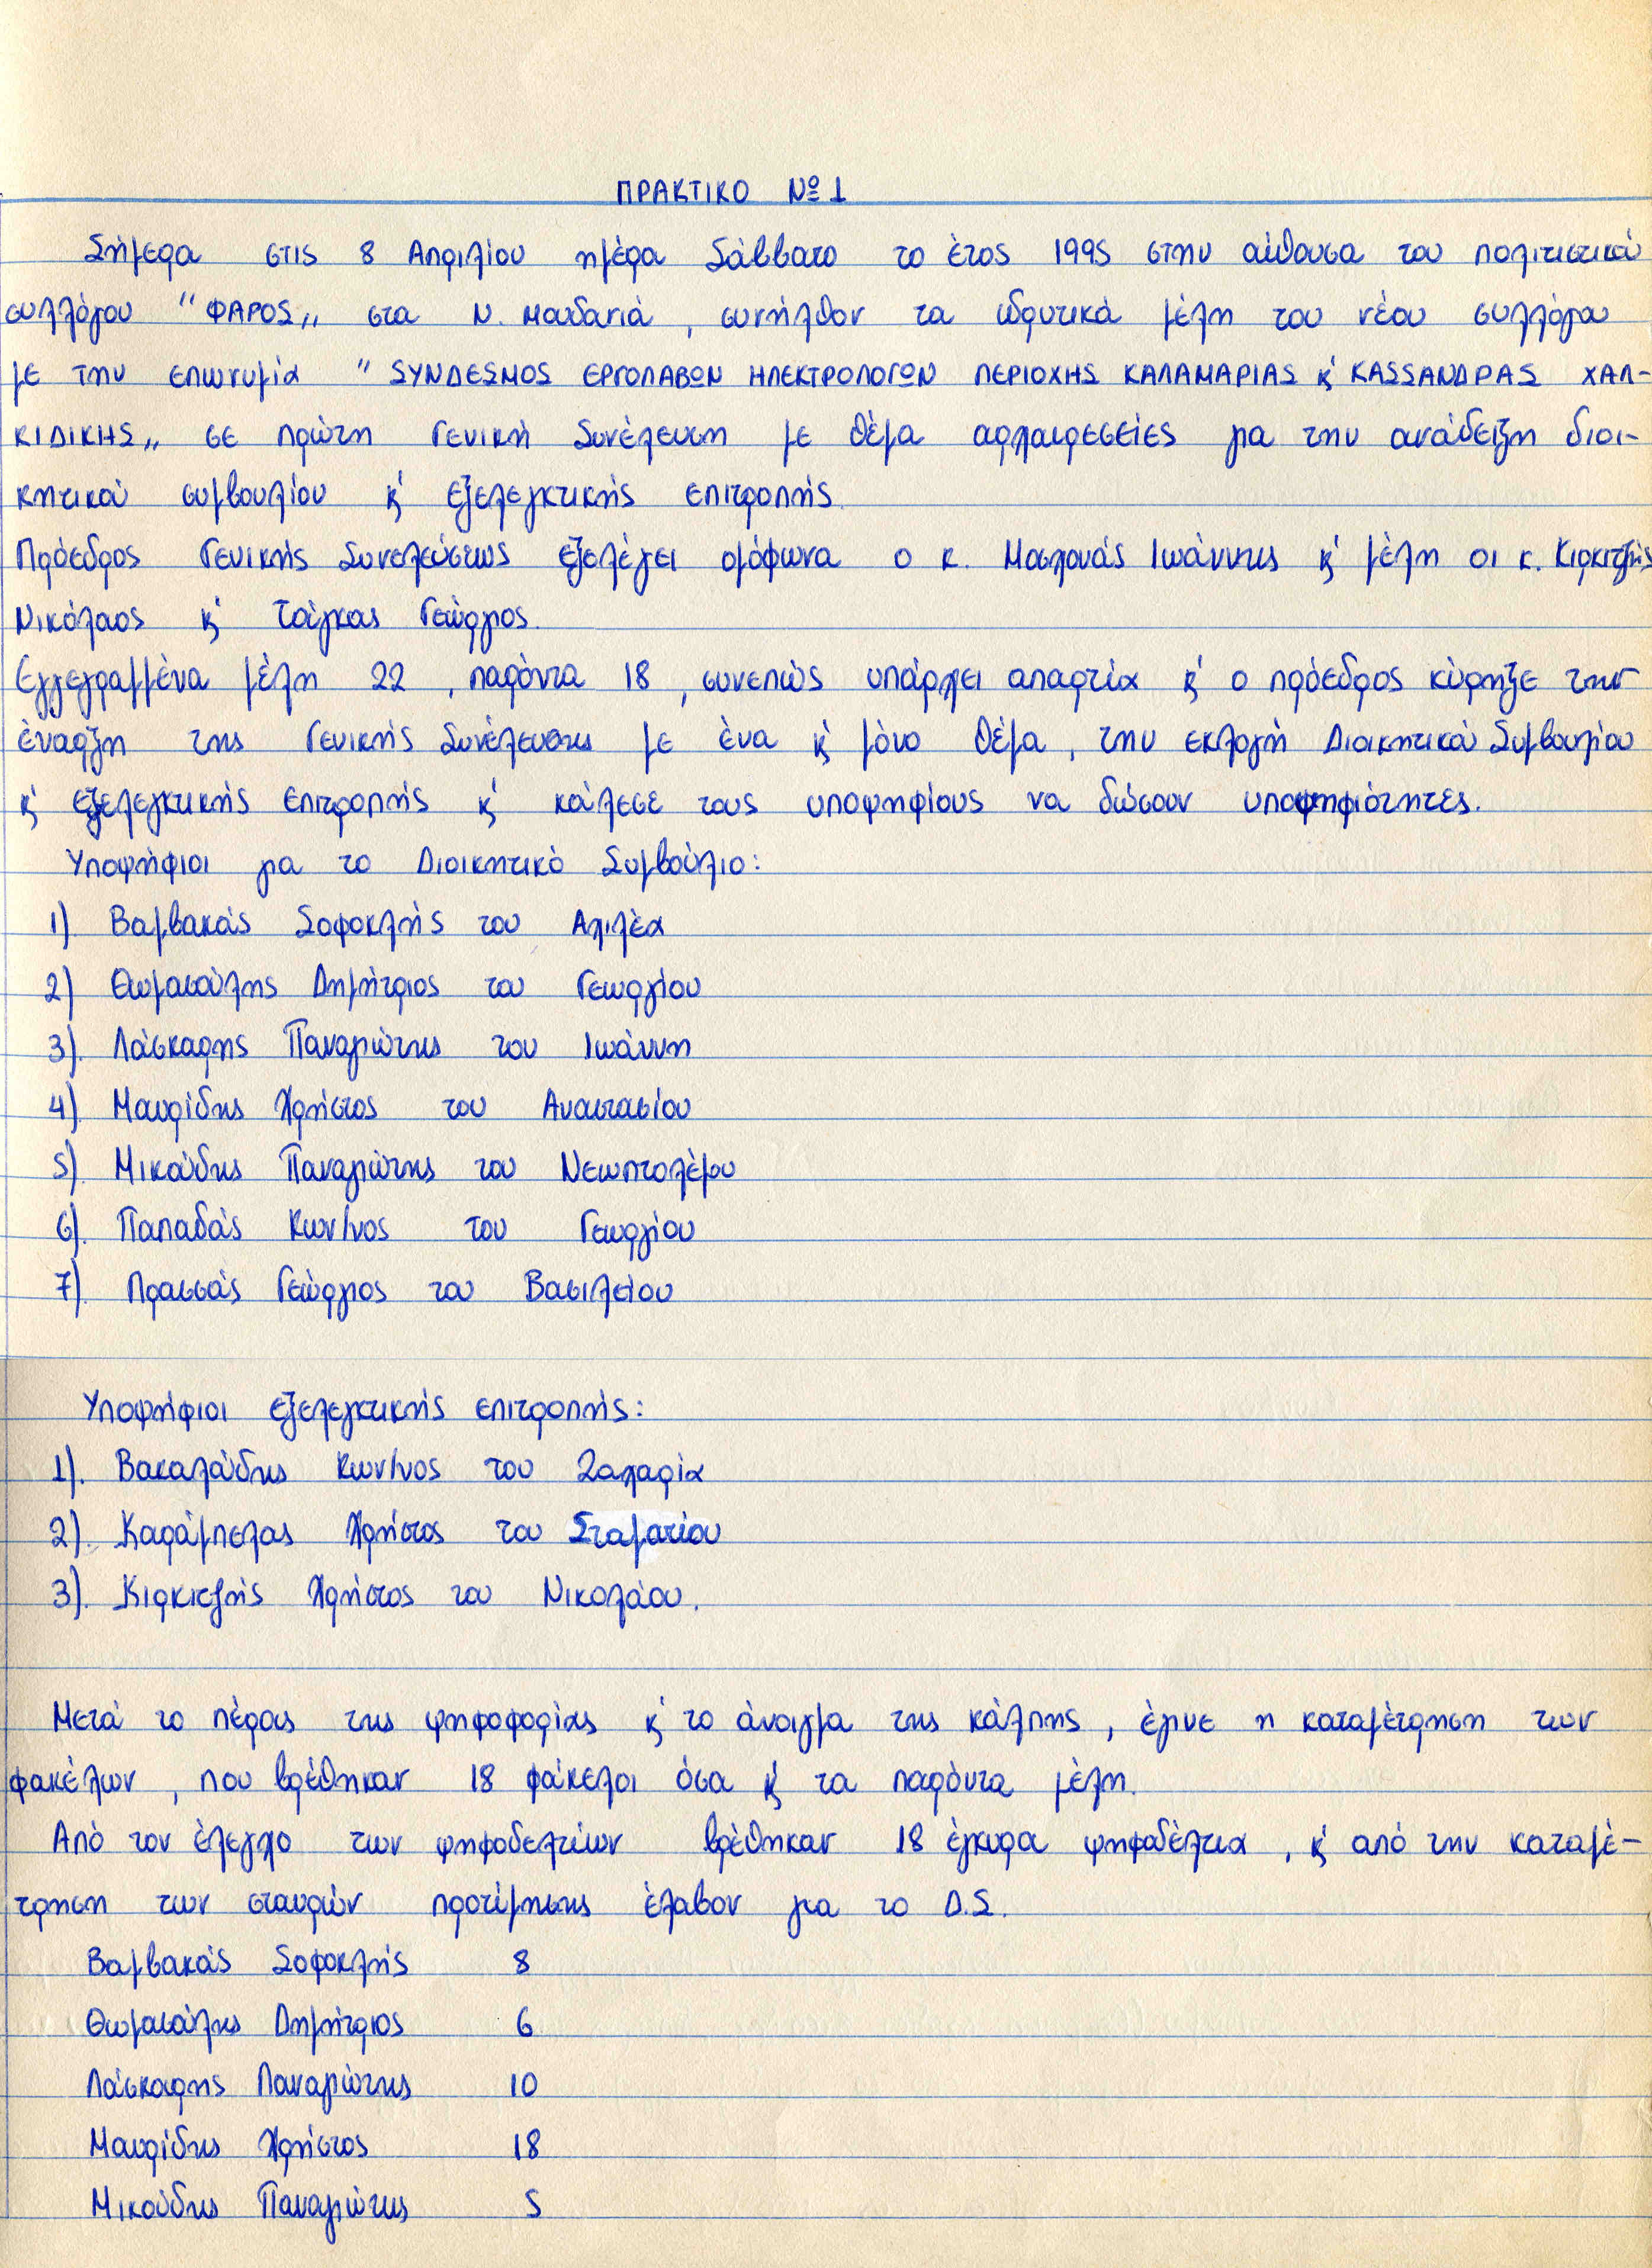 ΠΡΑΚΤΙΚΟ Νο 1
Σήμερα στις 8 Απριλίου ημέρα Σάββατο το έτος 1995 στην αίθουσα του πολιτιστικού
συλλόγου "ΦΑΡΟS„ στα Ν. Μουδανιά, συνήλθον τα ιδρυτικά μέλη του νέου συλλόγου
με την επωνυμία "SYNΔESMOS ΕΡΓΟΛΑΒΩΝ ΗΛΕΚΤΡΟΛΟΓΩΝ ΠΕΡΙΟΧΗS ΚΑΛΑΜΑΡΙΑS κ' KASSANΔΡΑS ΧΑΛ-
ΚΙΔΙΚΗS„ σε πρώτη Γενική Συνέλευση με θέμα αρχαιρεσείες για την ανάδειξη διοι-
κητικού συμβουλίου κ' εξελεγκτικής επιτροπής.
Πρόεδρος Γενικής Συνελεύσεως εξελέγει ομόφωνα ο κ. Ιωάννης κ' μέλη οι κ. Κιρκιτζής
Νικόλαος κ' Τσίγκας Γεώργιος.
Εγγεγραμμένα μέλη 22, παρόντα 18, συνεπώς υπάρχει απαρτία κ' ο πρόεδρος κύρηξε την
έναρξη της Γενικής Συνέλευσης με ένα κ' μόνο θέμα, την εκλογή Διοικητικού Συμβουλίου
κ' εξελεγκτικής επιτροπής κ' κάλεσε τους υποψηφίους να δώσουν υποψηφιότητες.
Υποψήφιοι για το Διοικητικό Συμβούλιο:
1) Βαμβακάς Σοφοκλής του Αχιλέα
2) Θωμασούλης Δημήτριος του Γεωργίου
3). Λάσκαρης Παναγιώτης του Ιωάννη
4) Μαυρίδης Χρήστος του Αναστασίου
5) Μικούδης Παναγιώτης του Νεωπτολέμου
6). Παπαδάς Κων/νος του Γεωργίου
7). Πρασσάς Γεώργιος του Βασιλείου
Υποψήφιοι εξελεγκτικής επιτροπής:
1). Βακαλούδης Κων/νος του Ζαχαρία
2). Καράμπελας Χρήστος του Σταματίου
3). Κιρκιτζής Χρήστος του Νικολάου.
Μετά το πέρας της ψηφοφορίας κ' το άνοιγμα της κάλπης, έγινε η καταμέτρηση των
φακέλων, που βρέθηκαν 18 φάκελοι όσα κ' τα παρόντα μέλη.
Από τον έλεγχο των ψηφοδελτίων βρέθηκαν 18 έγκυρα ψηφοδέλτια, κ' από την καταμέ-
τρηση των σταυρών προτίμησης έλαβον για το Δ.Σ.
Βαμβακάς Σοφοκλής 8
Θωμασούλης Δημήτριος 6
Λάσκαρης Παναγιώτης 10
Μαυρίδης Χρήστος 18
Μικούδης Παναγιώτης 5